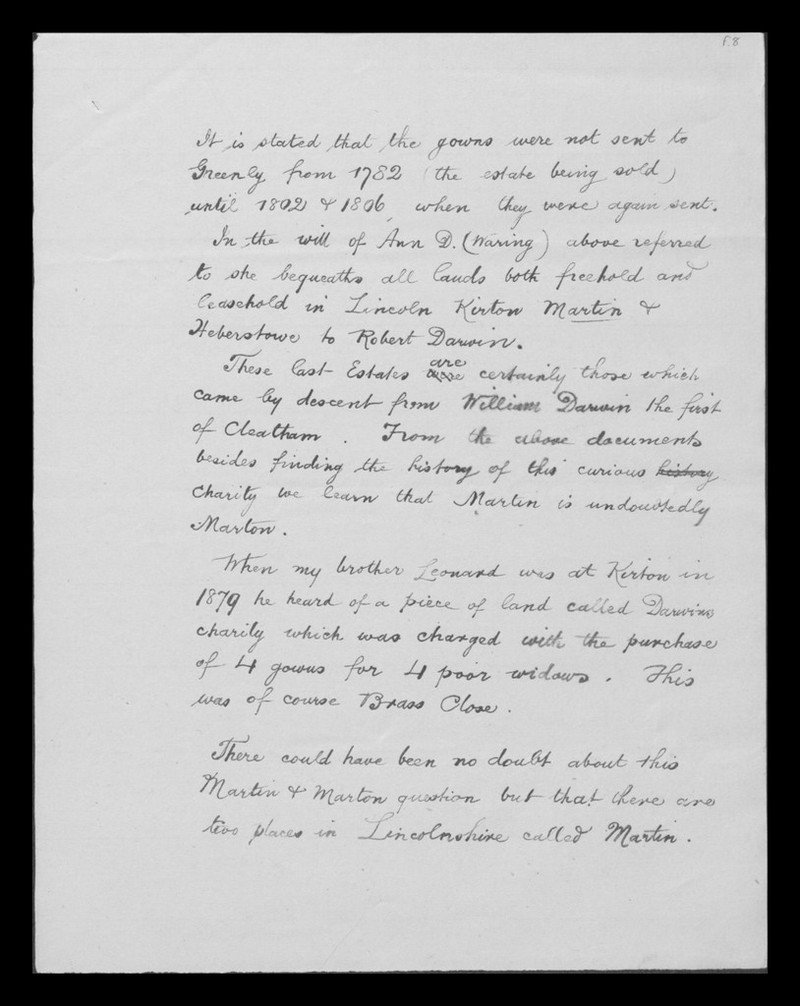 F.8
It is stated that the gowns were not sent to
Greenly from 1782 (the estate being sold)
until 1802 & 1806, when they were again sent.
In the will of Ann D. (Waring) above referred
to she bequeaths all lands both freehold and
leasehold in Lincoln Kirton Martin &
Heberstowe to Robert Darwin.
These last Estates are certainly those which
came by descent from William Darwin the first
of Cleatham. From the above documents
besides finding the history of this curious history
charity we learn that Martin is undoubtedly
Marton.
When my brother Leonard was at Kirton in
1879 he heard of a piece of land called Darwins
charity which was charged with the purchase
of 4 gowns for 4 poor widows. This
was of course Brass Close.
There could have been no doubt about this
Martin & Marton question but that there are
two places in Lincolnshire called Martin.